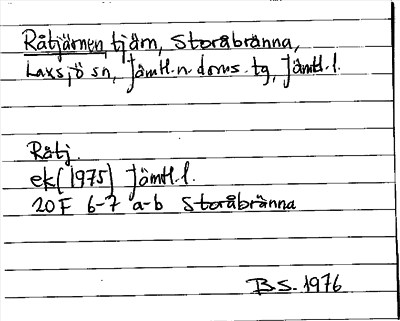 Råtjärnen, tjärn, Storåbränna,
Laxsjö sn, Jämtl. n. doms. tg, Jämtl. l.
Råtj.
ek (1975) Jämtl. l.
20F 6-7 a-b Storåbränna
B S. 1976